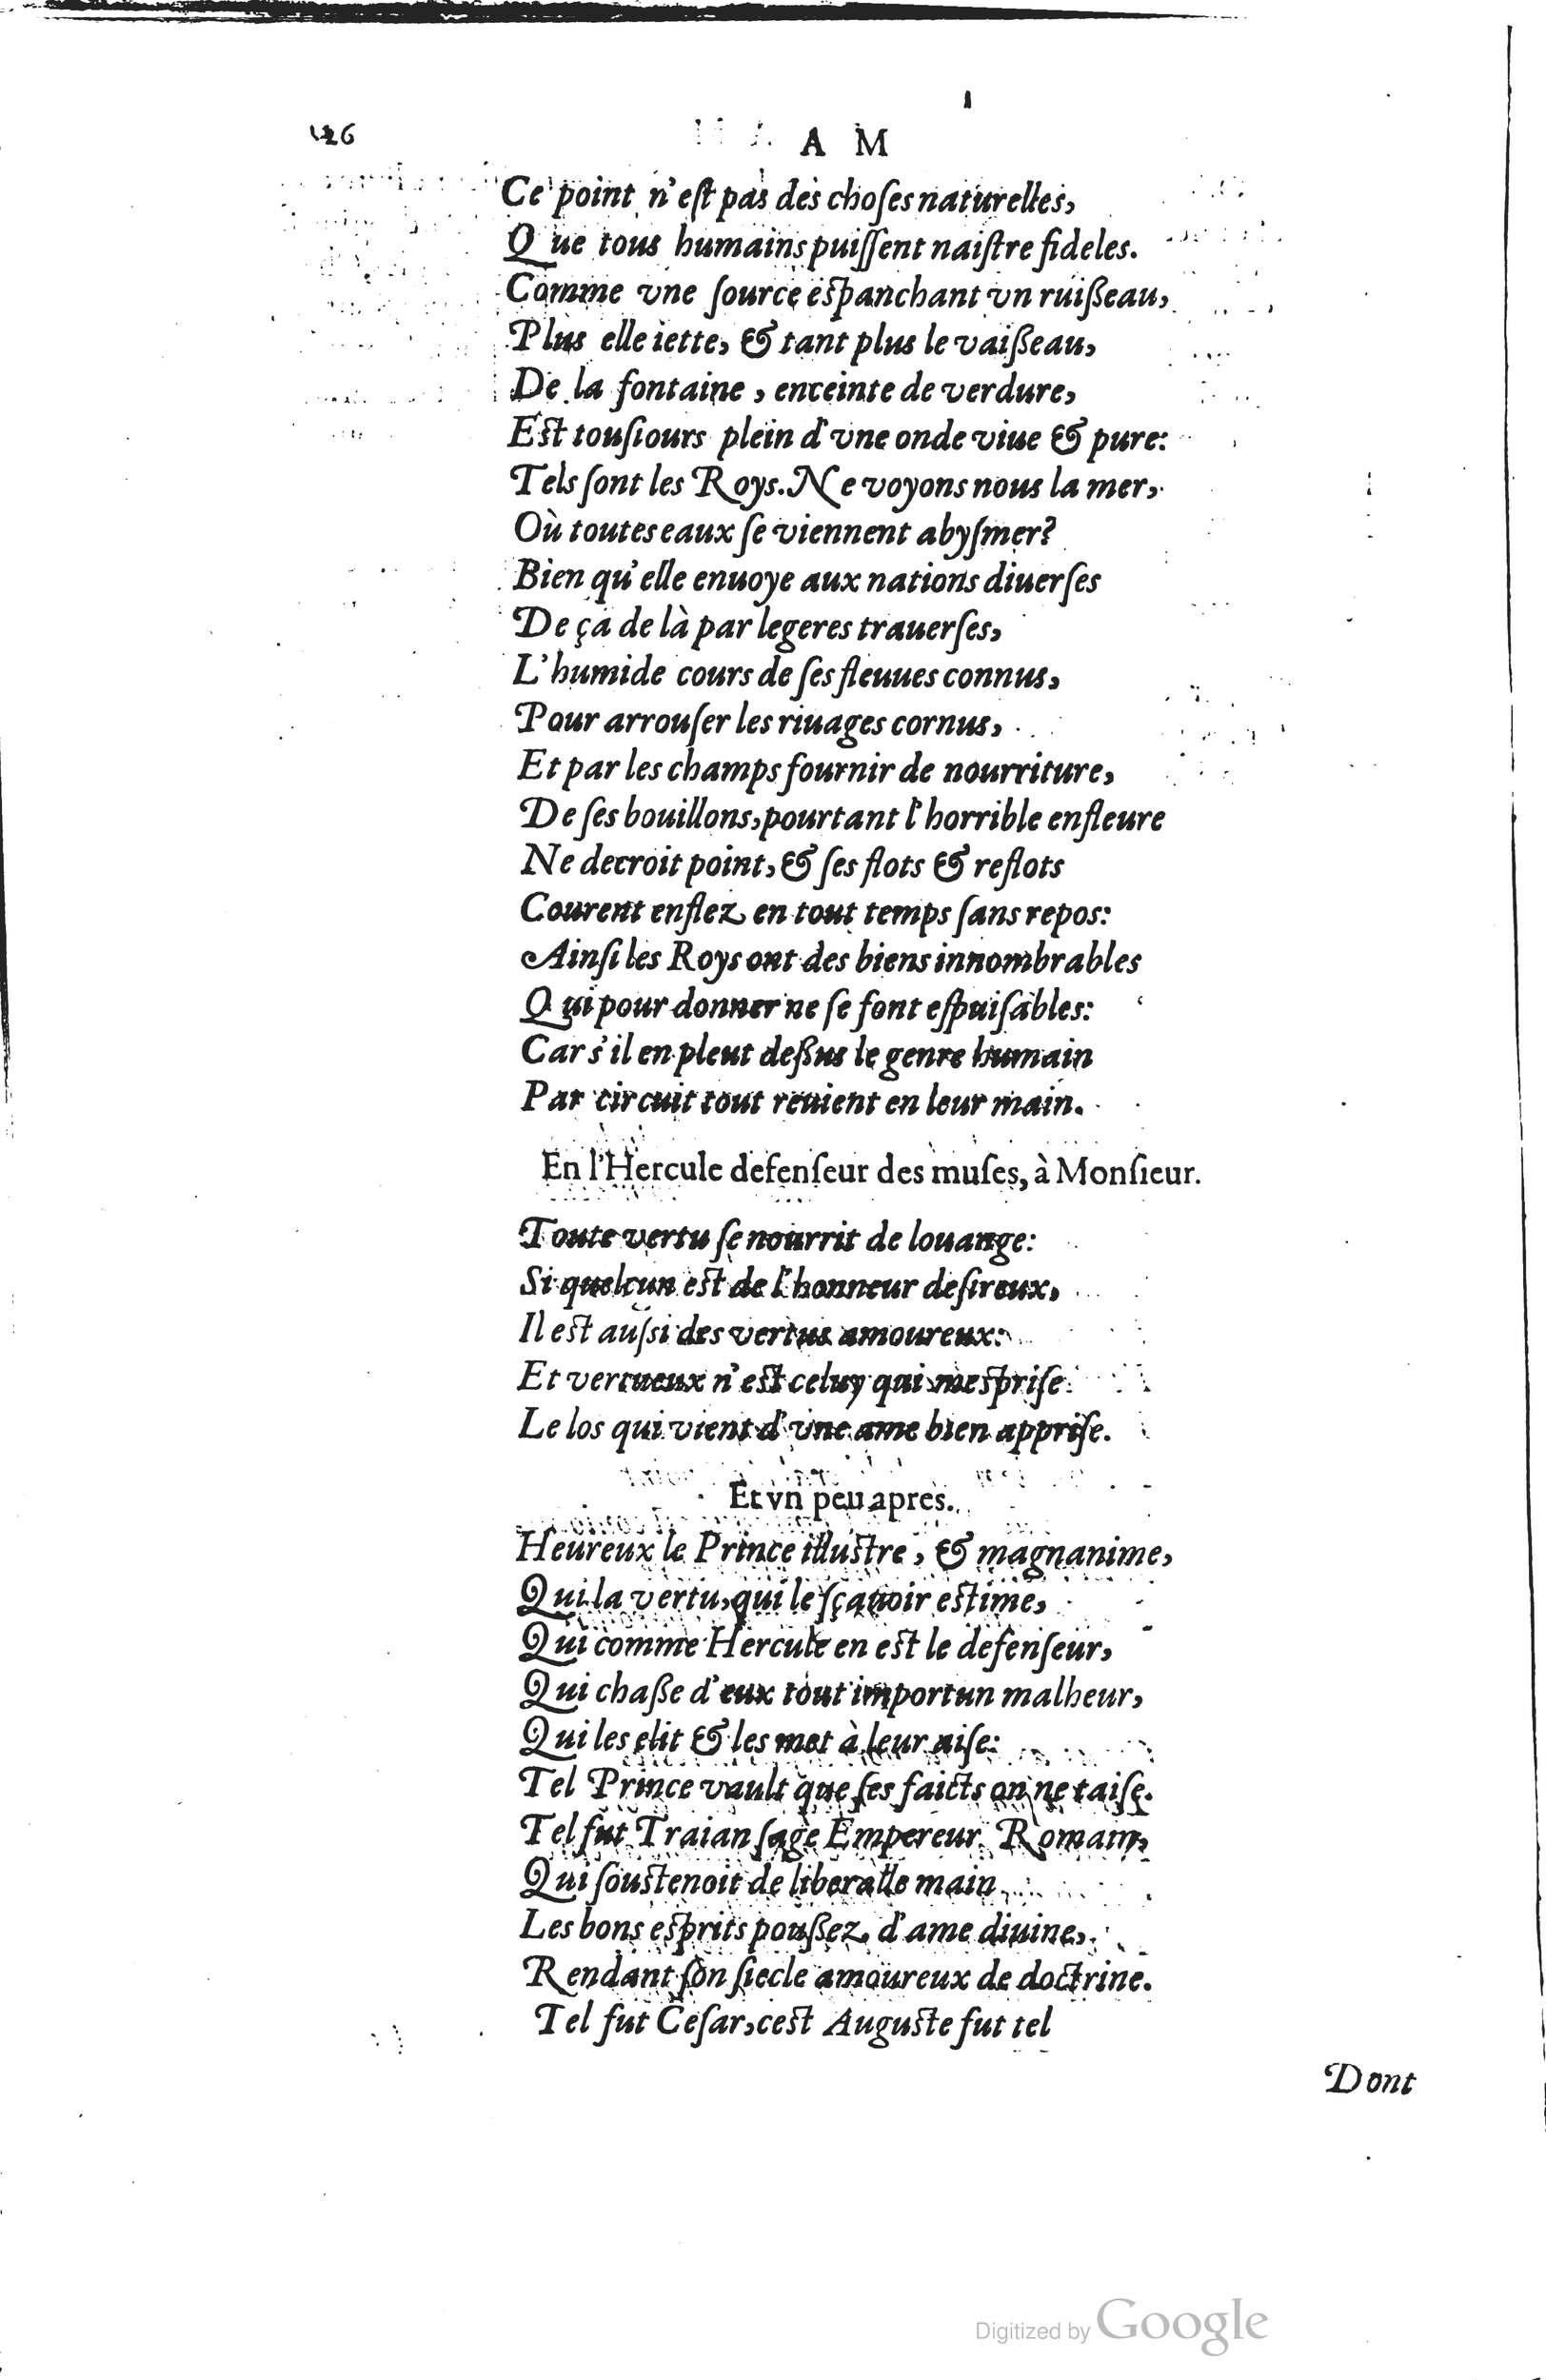 26
A M
Ce point n'eſt pas des choſes naturelles,
Que tous humains puiſſent naiſtre fideles.
Comme vne ſource eſpanchant vn ruißeau,
Plus elle iette, & tant plus le vaißeau,
De la fontaine, enceinte de verdure,
Eſt touſiours plein d'vne onde viue & pure:
Tels ſont les Roys. Ne voyons nous la mer,
Où toutes eaux ſe viennent abyſmer?
Bien qu'elle enuoye aux nations diuerſes
De ça de là par legeres trauerſes,
L'humide cours de ſes fleuues connus,
Pour arrouſer les riuages cornus,
Et par les champs fournir de nourriture,
De ſes bouillons, pourtant l'horrible enfleure
Ne decroit point, & ſes flots & reflots
Courent enflez en tout temps ſans repos:
Ainſi les Roys ont des biens innombrables
Qui pour donner ne ſe font eſpuiſables:
Car s'il en pleut deßus le genre humain
Par circuit tout reuient en leur main.
En l'Hercule defenſeur des muſes, à Monſieur.
Toute vertu ſe nourrit de louange:
Si quelcun eſt de l'honneur deſireux,
Il eſt auſsi des vertus amoureux:
Et vertueux n'eſt celuy qui meſpriſe
Le los qui vient d'vne ame bien appriſe.
Et vn peu apres.
Heureux le Prince illuſtre, & magnanime,
Qui la vertu, qui le ſçauoir eſtime,
Qui comme Hercule en eſt le defenſeur,
Qui chaße d'eux tout importun malheur,
Qui les elit & les met à leur aiſe:
Tel Prince vault que ſes faicts on ne taiſe.
Tel fut Traian ſage Empereur Romain,
Qui ſouſtenoit de liberalle main
Les bons eſprits poußez d'ame diuine,
Rendant ſon ſiecle amoureux de doctrine.
Tel fut Ceſar, ceſt Auguſte fut tel
Dont
Digitized by Google